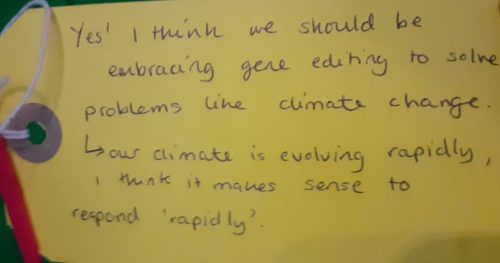 Yes! I think we should be
embracing gene editing to solve
problems like climate change.
↳our climate is evolving rapidly,
i think it makes sense to
respond 'rapidly'.